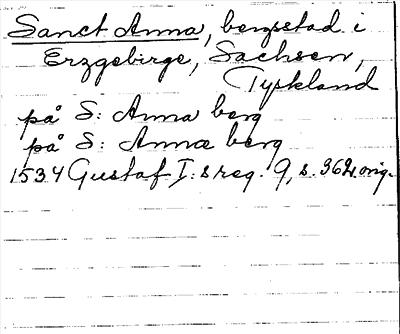 Sanct Anna, bergsstad i
Erzgebirge, Sachsen,
Tyskland
på S: Anna berg
på S: Annæ berg
1534 Gustaf I:s reg. 9, s. 362. orig.